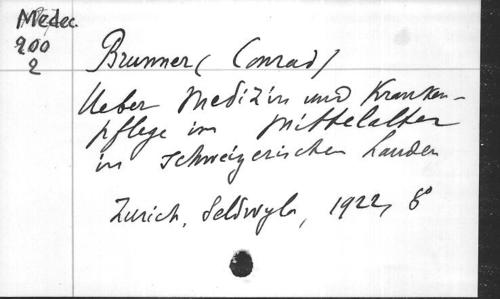 Medec.
200
2
Brunner (Conrad)
Ueber Medizin und Kranken-
pflege im Mittelalter
in Schweizerischen Landen
Zurich, Seldwyla, 1922, 8°